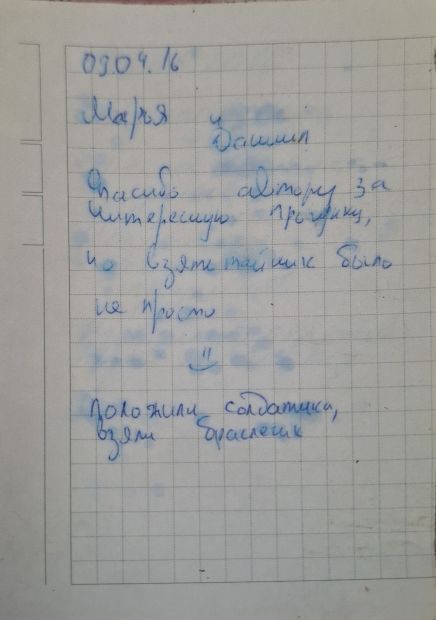 03.04.16
Марья и
Спасибо автору за
интересную прогулку,
но взять тайник было
не просто
положили солдатика,
взяли браслетик